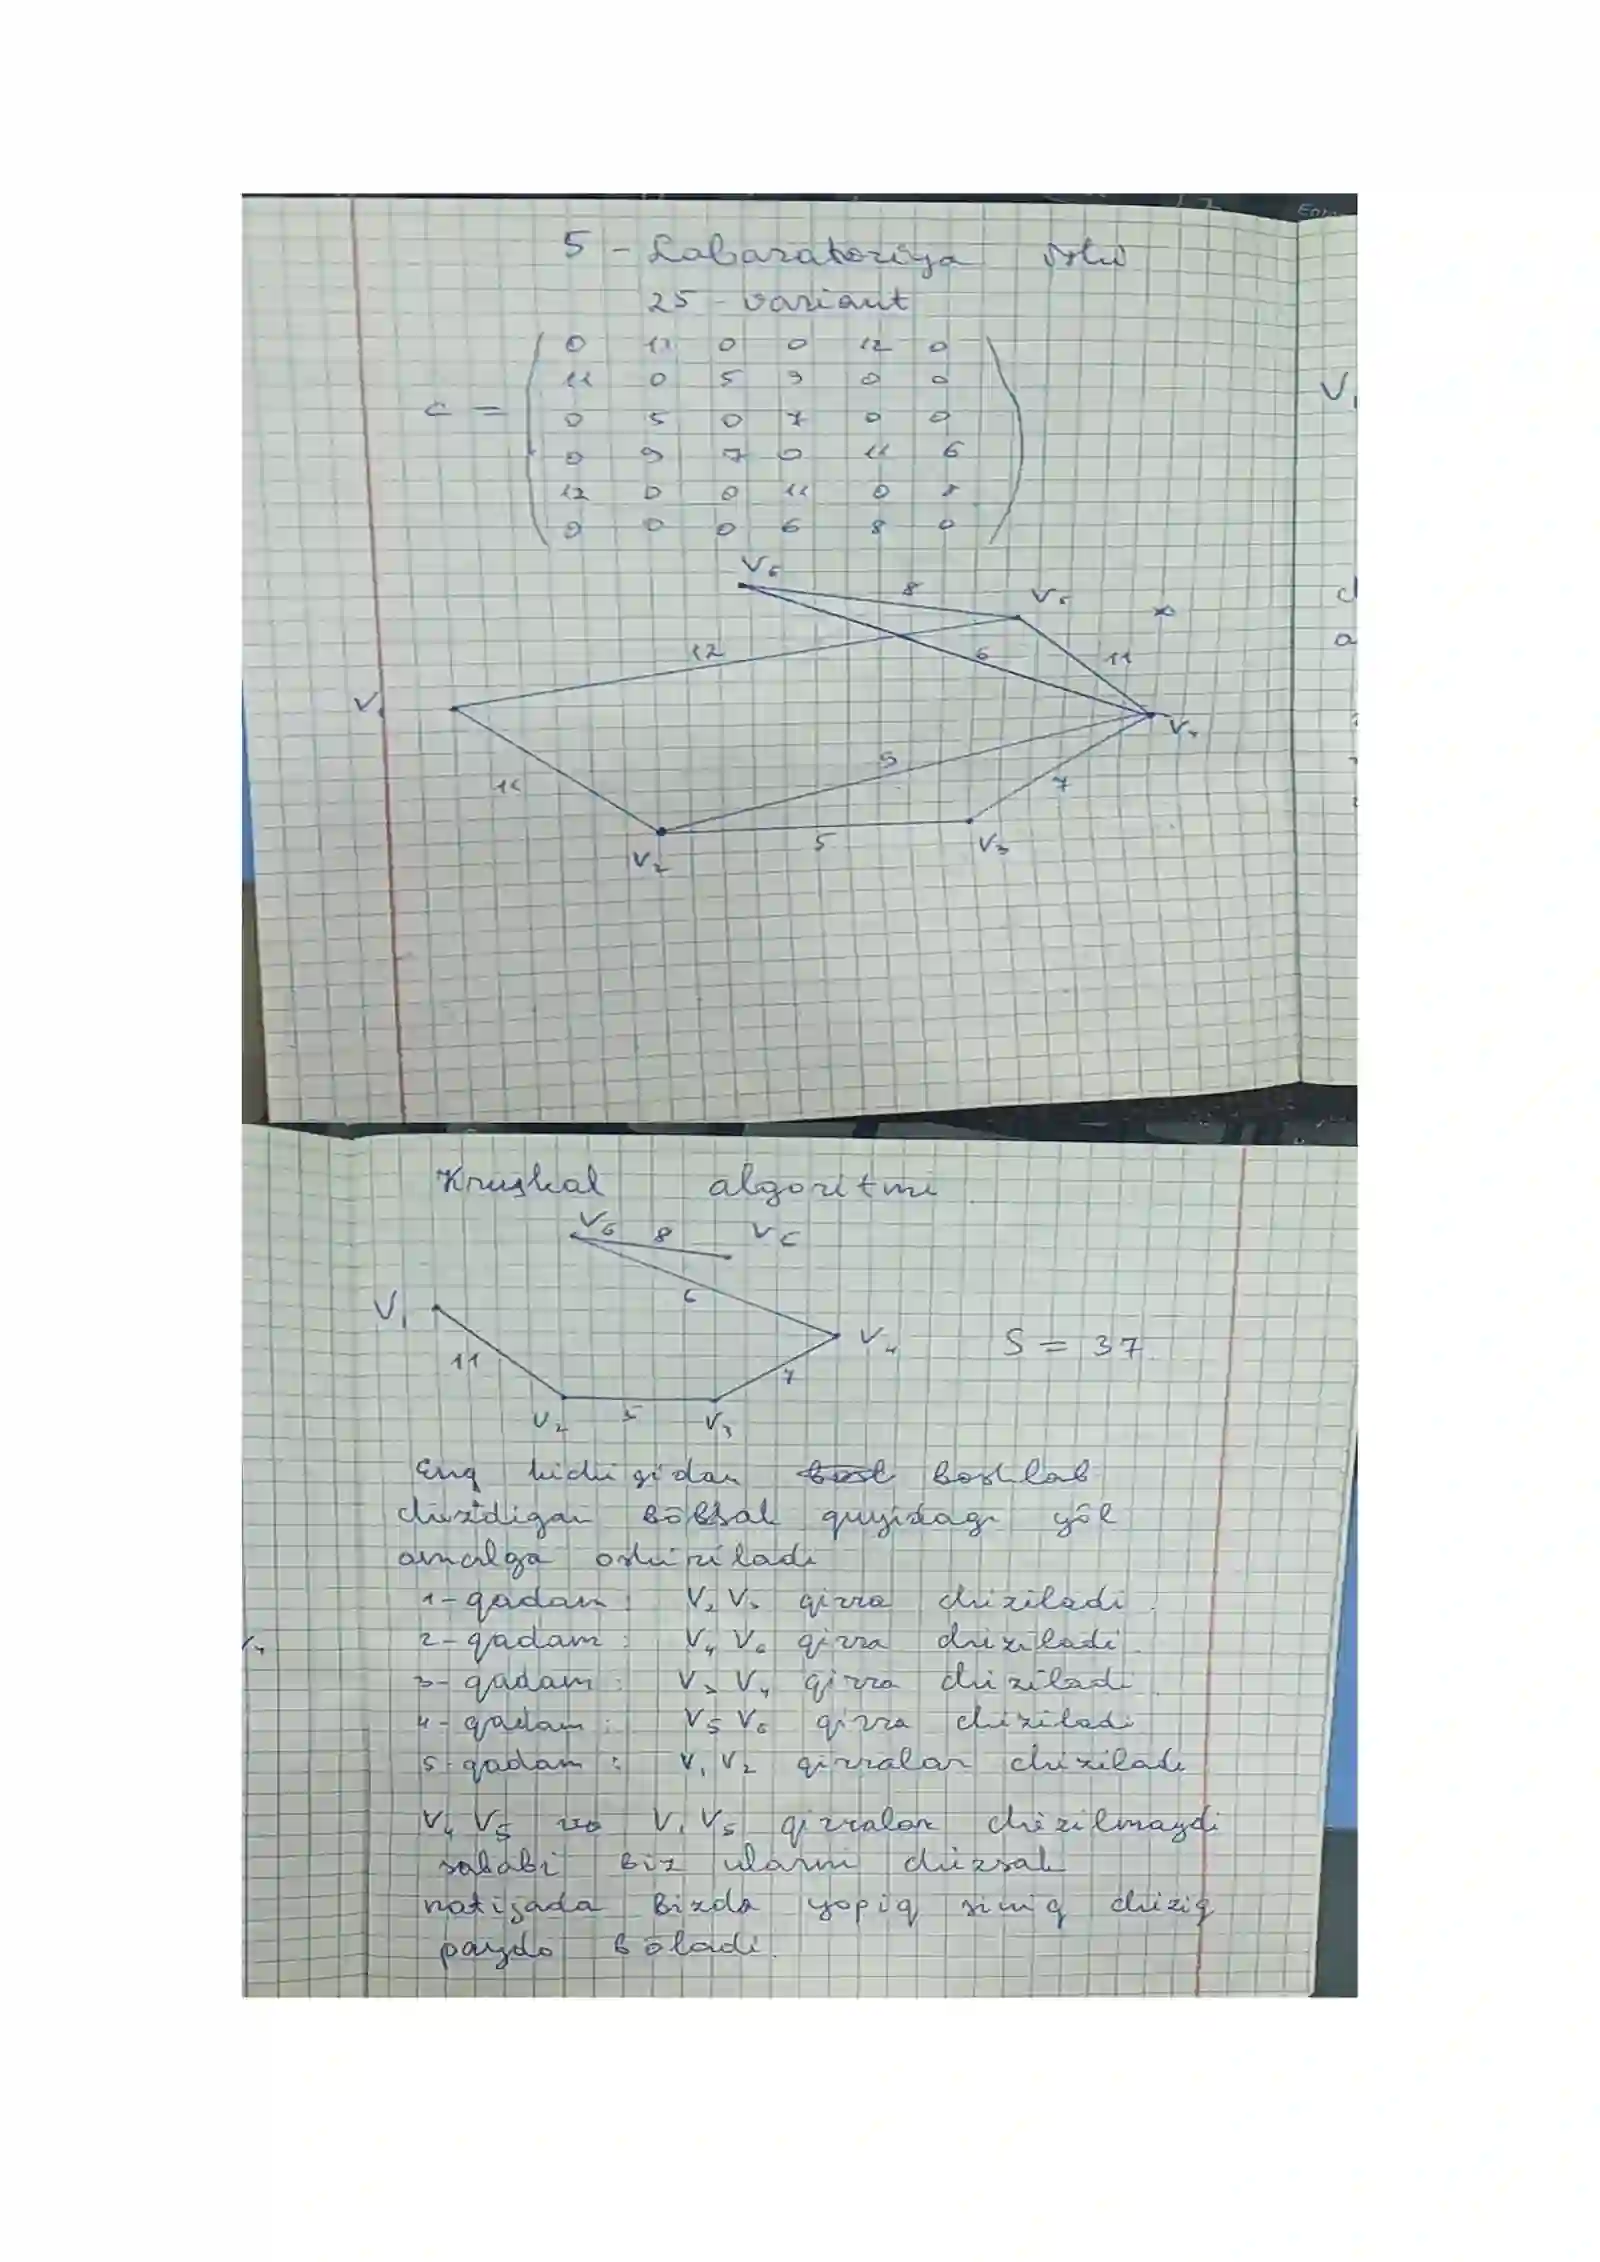 5 - Labaratoriya ishi
25 - variant
0 11 0 0 12 0
11 0 5 9 0 0
C = 0 5 0 7 0 0
0 9 7 0 11 6
12 0 0 11 0 8
0 0 0 6 8 0
V6
8
V5
12
6
11
V1
V4
9
11
7
5
V3
V2
Kruskal algoritmi
V6 8 V5
6
V1
V4 S = 37
11
7
V2 5 V3
Eng kichigidan boshlab
chizdigan bõlsak quyidagi yõl
amalga oshiriladi
1 - qadam: V2 V3 qirra chiziladi
2 - qadam: V4 V6 qirra chiziladi
3 - qadam: V3 V4 qirra chiziladi
4 - qadam: V5 V6 qirra chiziladi
5 - qadam: V1 V2 qirralar chiziladi
V4 V5 va V1 V5 qirralar chizilmaydi
sababi biz ularni chizsak
natijada bizda yopiq siniq chiziq
paydo bõladi.